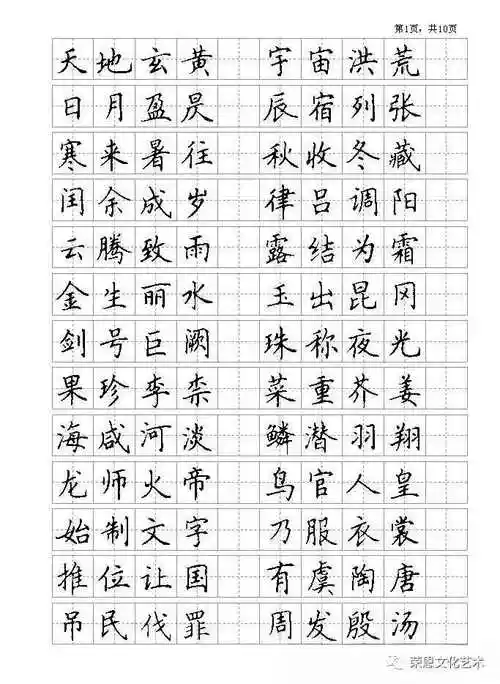 第1页,共10页
天地玄黄 宇宙洪荒
日月盈昃 辰宿列张
寒来暑往 秋收冬藏
闰余成岁 律吕调阳
云腾致雨 露结为霜
金生丽水 玉出昆冈
剑号巨阙 珠称夜光
果珍李柰 菜重芥姜
海咸河淡 鳞潜羽翔
龙师火帝 鸟官人皇
始制文字 乃服衣裳
推位让国 有虞陶唐
吊民伐罪 周发殷汤
荣恩文化艺术